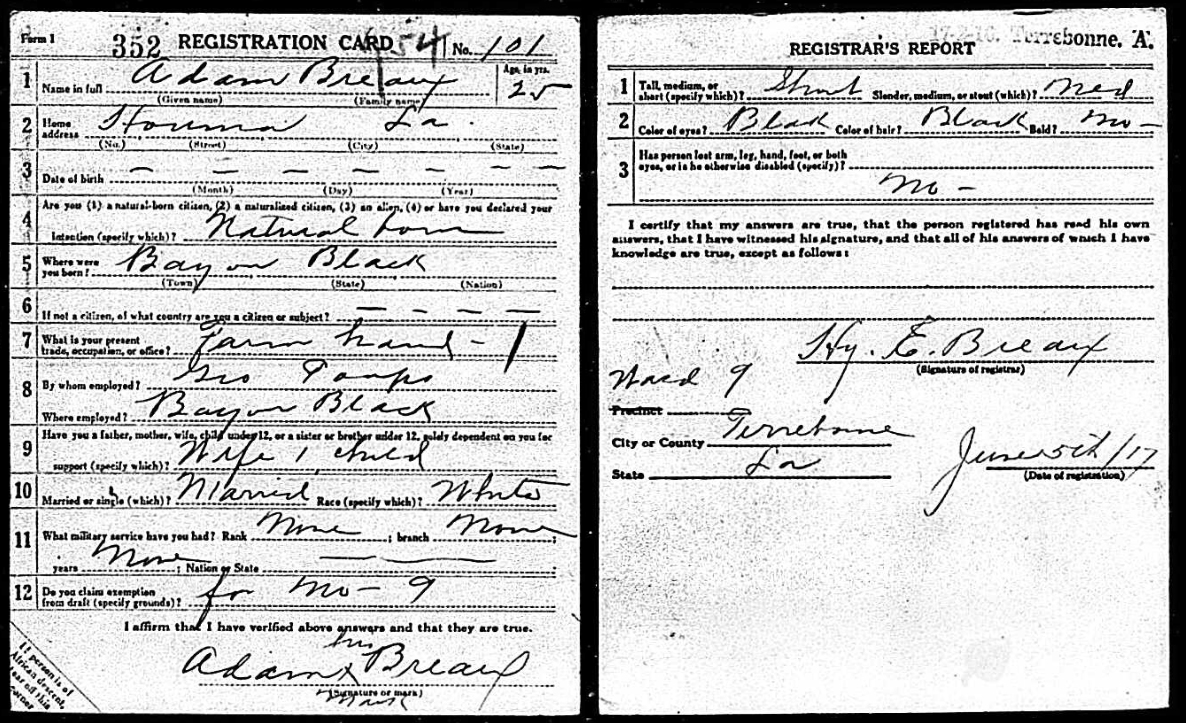 Form 1 352 REGISTRATION CARD 54 No. 101
1 Name in full Adam Breaux Age, in yrs. 25
(Given name) (Family name)
2 Home address Houma La.
(No.) (Street) (City) (State)
3 Date of birth — — — — — —
(Month) (Day) (Year)
4 Are you (1) a natural-born citizen, (2) a naturalized citizen, (3) an alien, (4) or have you declared your
intention (specify which)? Natural born
5 Where were you born? Bayou Black
(Town) (State) (Nation)
6 If not a citizen, of what country are you a citizen or subject? — — — —
7 What is your present trade, occupation, or office? Farm hand - 1
8 By whom employed? Geo
Where employed? Bayou Black
9 Have you a father, mother, wife, child under 12, or a sister or brother under 12, solely dependent on you for
support (specify which)? Wife 1 child
10 Married or single (which)? Married Race (specify which)? White
11 What military service have you had? Rank None ; branch None ;
years None ; Nation or State — —
12 Do you claim exemption from draft (specify grounds)? for No - 9
I affirm that I have verified above answers and that they are true.
his
Adam x Breaux
(Signature or mark)
mark
If person is of
African descent,
tear off this
corner
17-2-16. Terrebonne. A.
REGISTRAR'S REPORT
1 Tall, medium, or short (specify which)? Short Slender, medium, or stout (which)? Med
2 Color of eyes? Black Color of hair? Black Bald? No -
3 Has person lost arm, leg, hand, foot, or both
eyes, or is he otherwise disabled (specify)?
No -
I certify that my answers are true, that the person registered has read his own
answers, that I have witnessed his signature, and that all of his answers of which I have
knowledge are true, except as follows:
Hy. E. Breaux
(Signature of registrar)
Ward 9
Precinct
City or County Terrebonne
State La June 5th/17
(Date of registration)